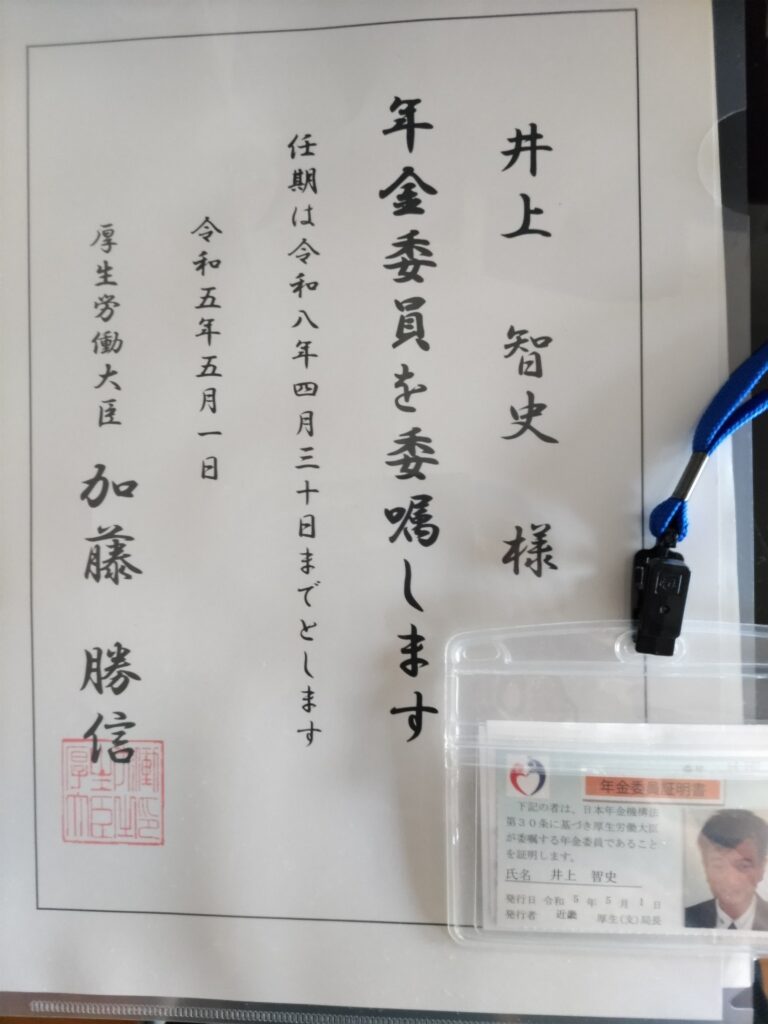 井上 智史 様
年金委員を委嘱します
任期は令和八年四月三十日までとします
令和五年五月一日
厚生労働大臣 加藤 勝信
年金委員証明書
下記の者は、日本年金機構法
第30条に基づき厚生労働大臣
が委嘱する年金委員であること
を証明します。
氏名 井上 智史
発行日 令和 5 年 5 月 1 日
発行者 近畿 厚生(支)局長